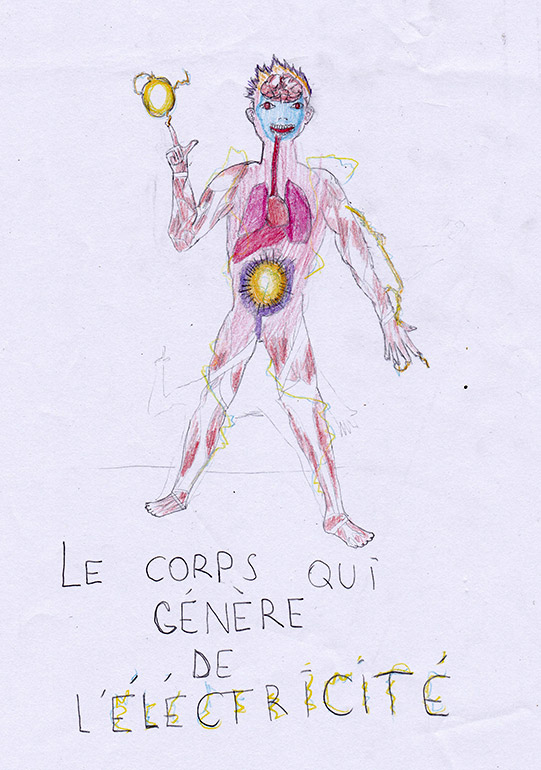 LE CORPS QUI
GÉNÈRE
DE
L'ÉLÉCTRICITÉ